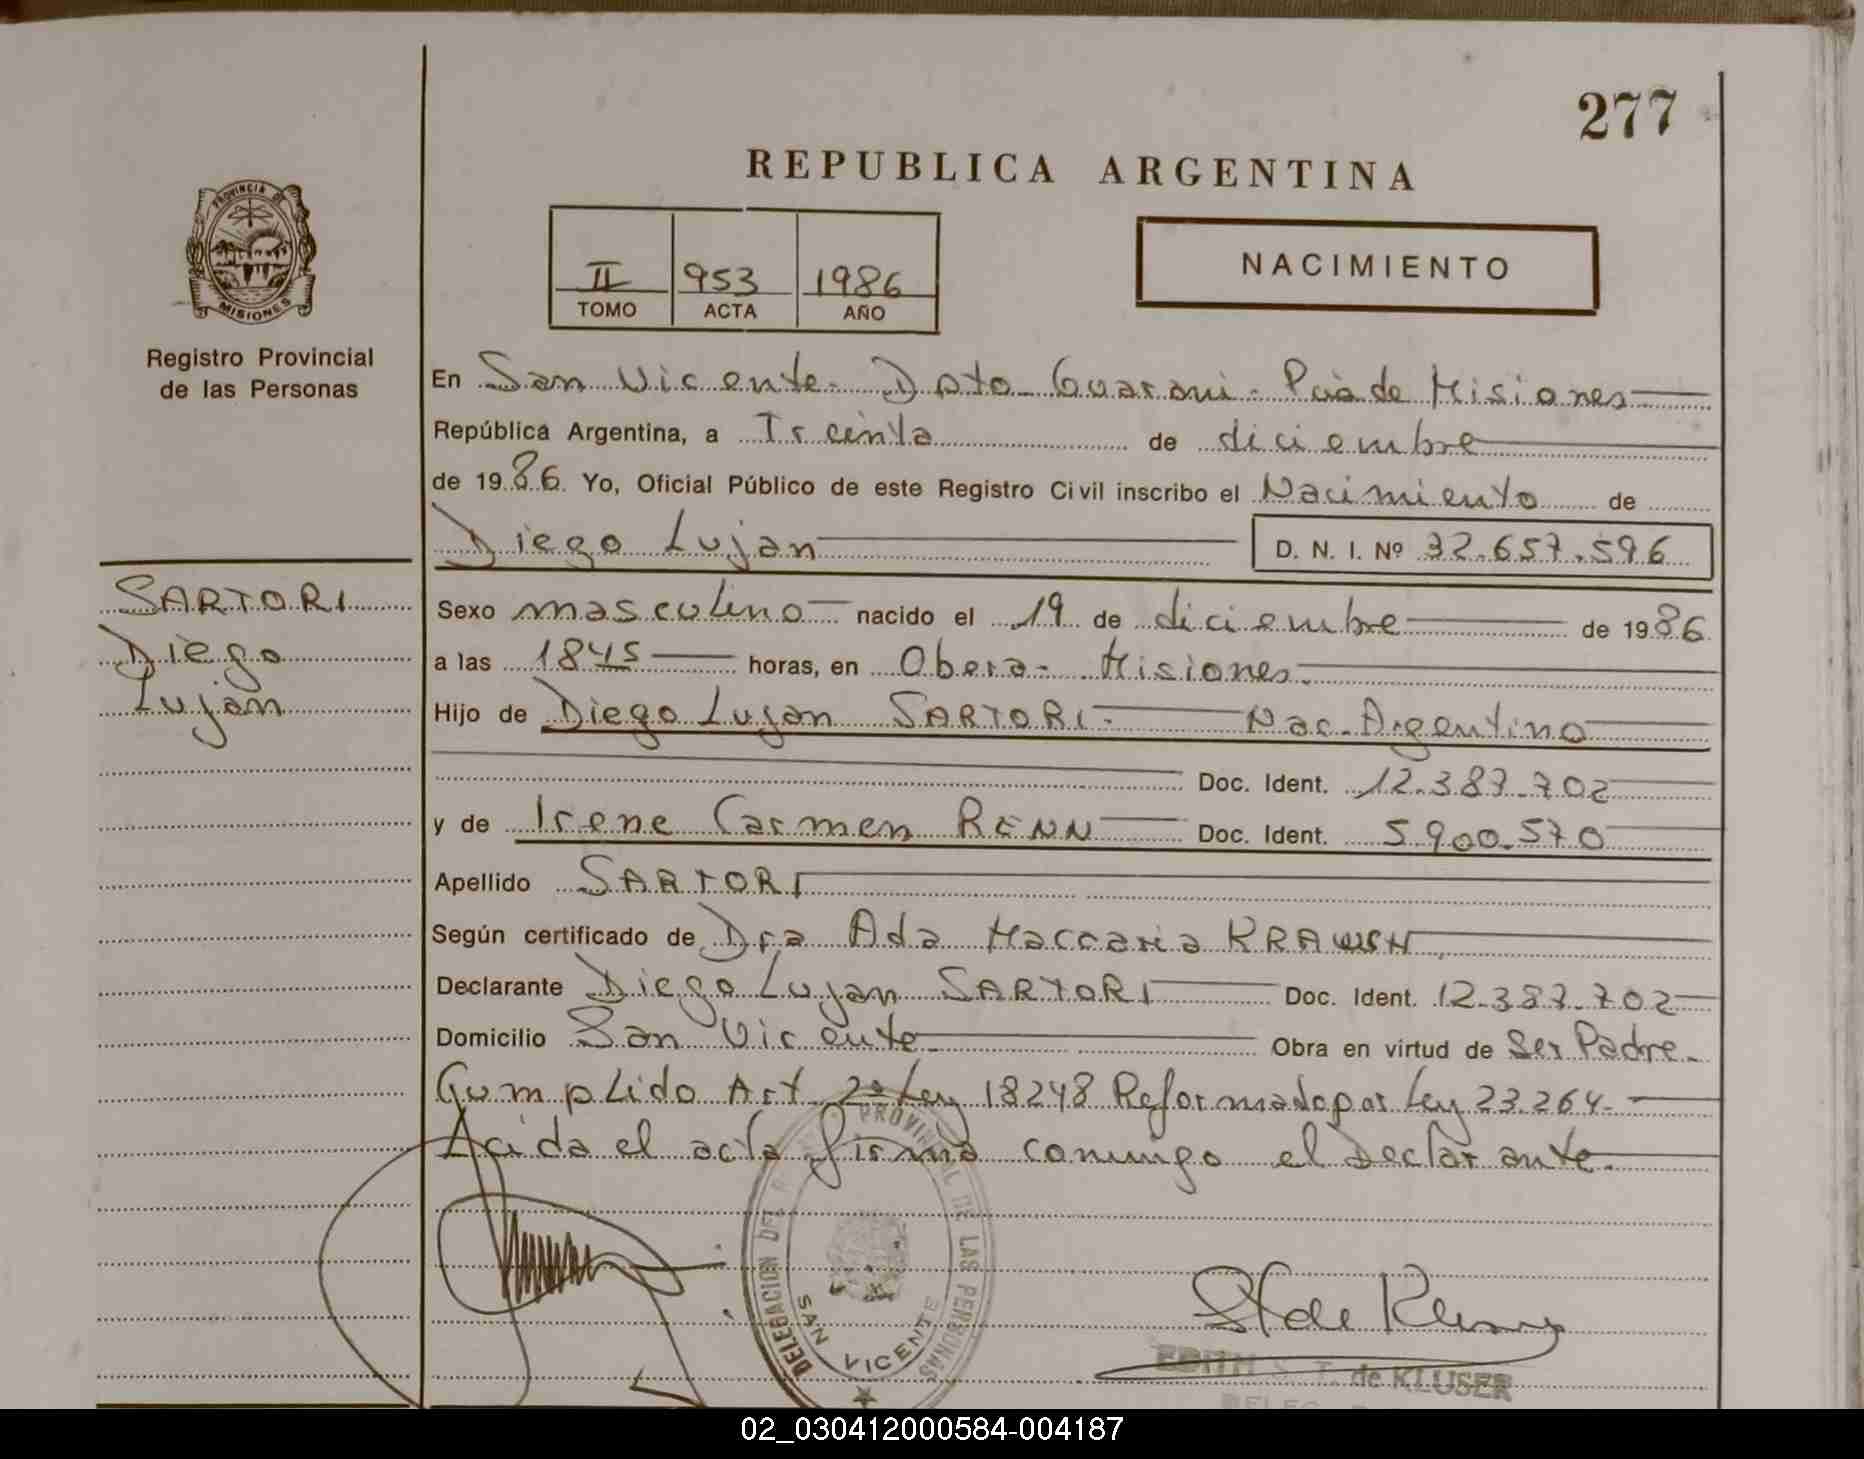 277
REPUBLICA ARGENTINA
PROVINCIA DE
MISIONES
Registro Provincial
de las Personas
II 953 1986
TOMO ACTA AÑO
NACIMIENTO
En San Vicente - Dpto Guarani - Pcia de Misiones
República Argentina, a Treinta de diciembre
de 1986. Yo, Oficial Público de este Registro Civil inscribo el Nacimiento de
Diego Lujan D. N. I. Nº 32.657.596
SARTORI
Diego
Lujan
Sexo masculino nacido el 19 de diciembre de 1986
a las 1845 horas, en Obera - Misiones.
Hijo de Diego Lujan SARTORI - Nac. Argentino
Doc. Ident. 12.387.702
y de Irene Carmen RENN Doc. Ident. 5.900.570
Apellido SARTORI
Según certificado de Dra Ada Maccaria
Declarante Diego Lujan SARTORI Doc. Ident. 12.387.702
Domicilio San Vicente Obra en virtud de Ser Padre.
Cumplido Art 2º Ley 18248 Reformado por Ley 23.264.
Leida el acta firma conmigo el Declarante.
DELEGACION DEL PROVINCIAL DE LAS PERSONAS
SAN VICENTE
EDITH S. T. de KLUSER
02_030412000584-004187